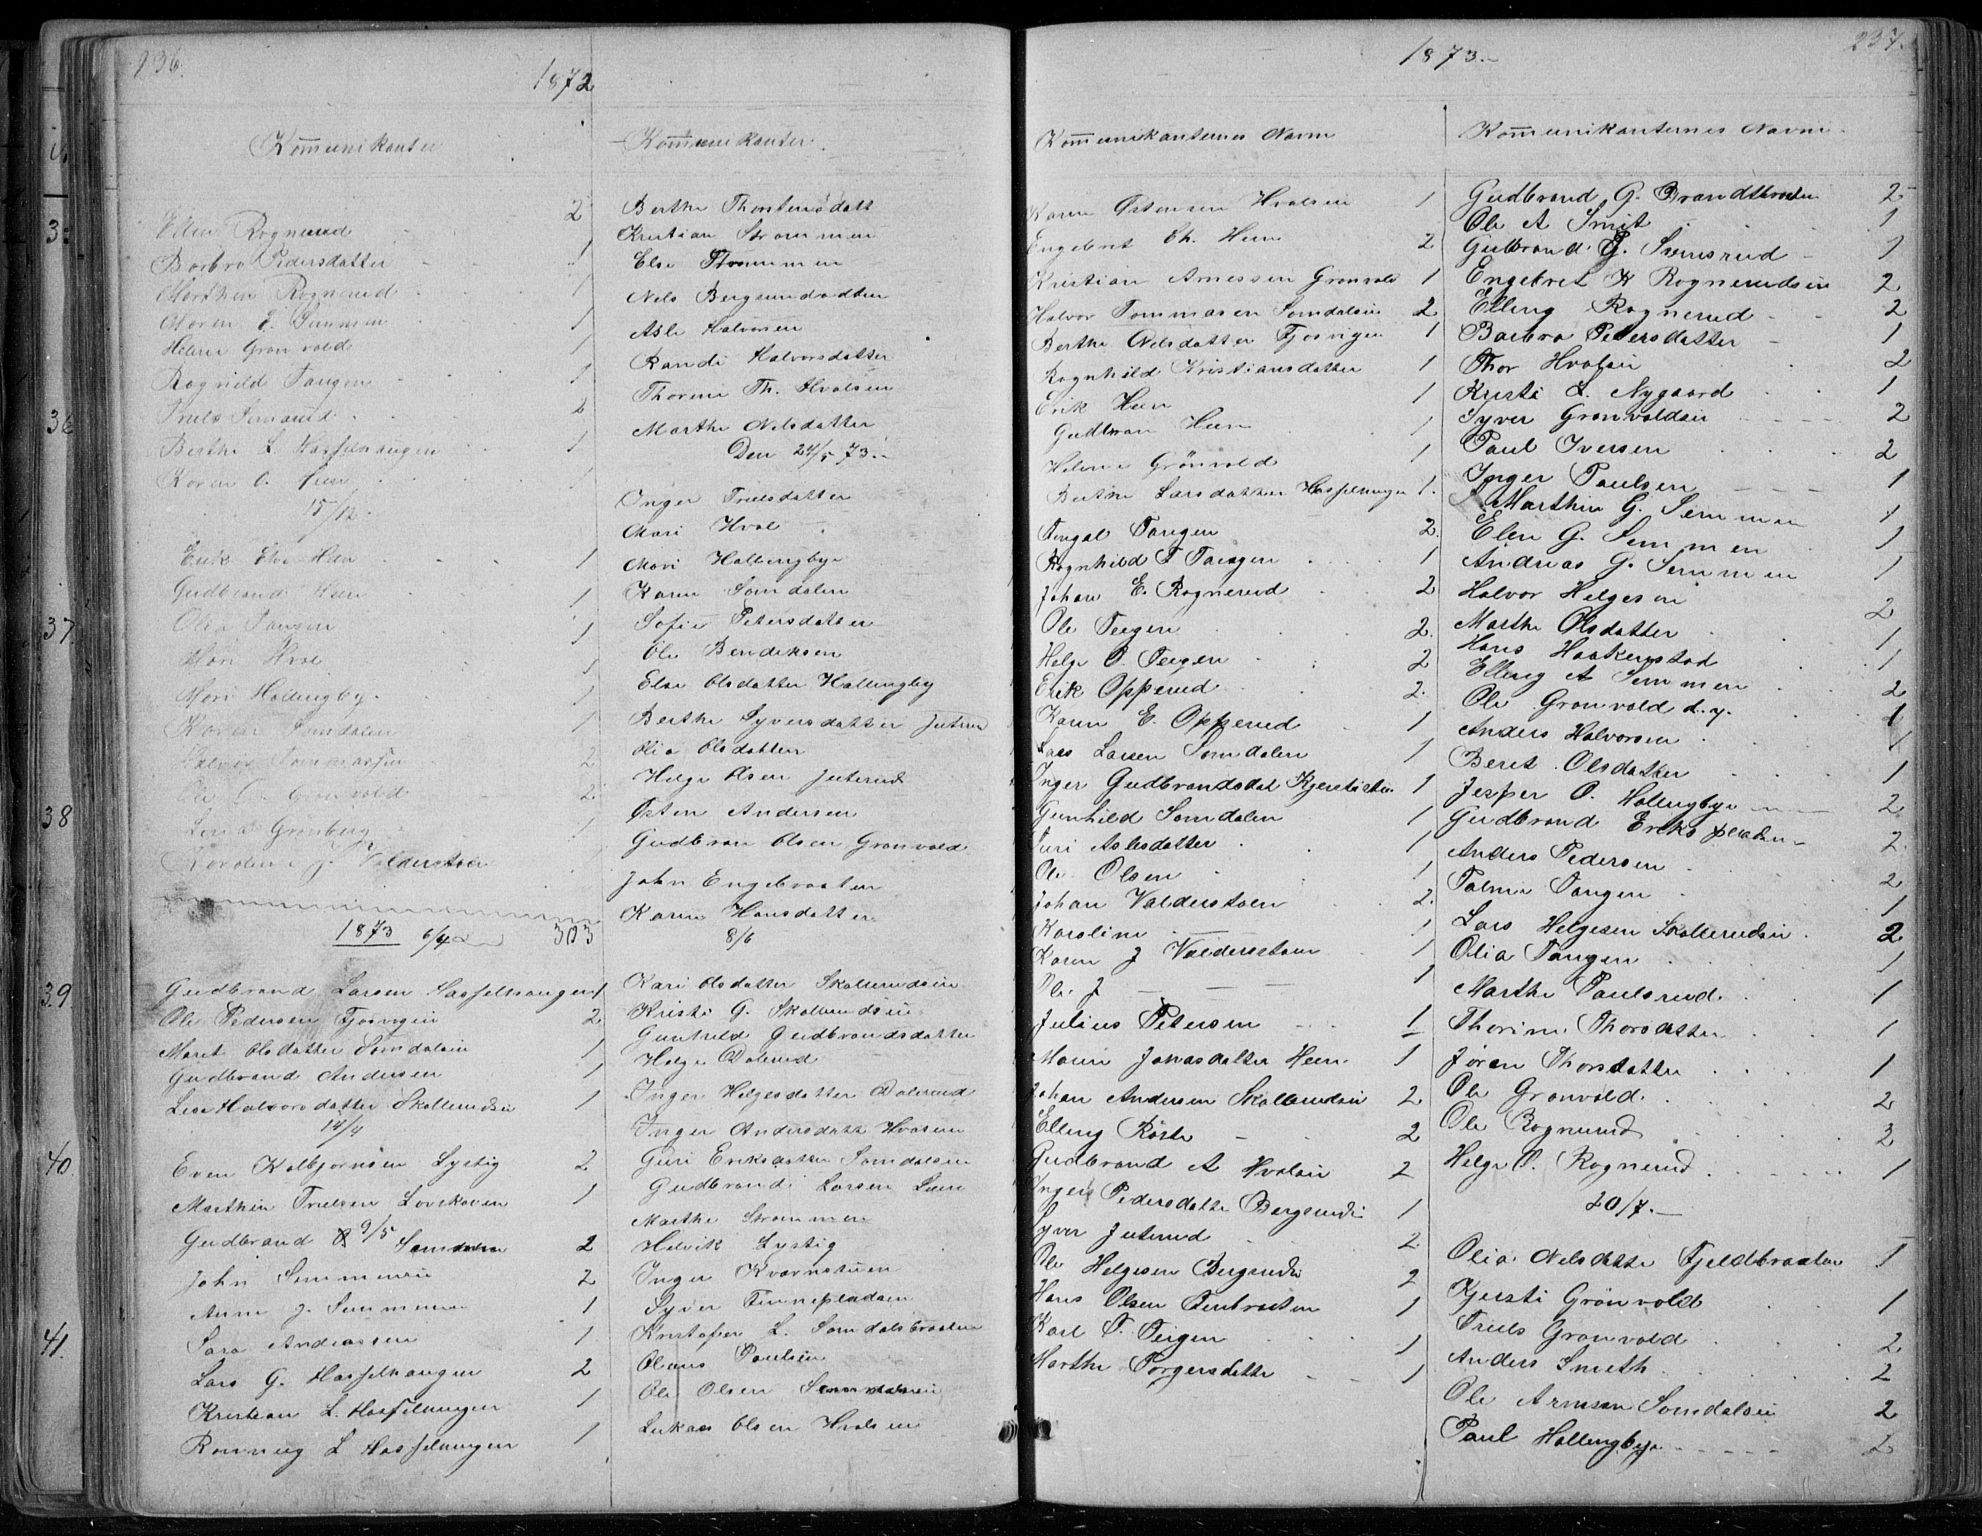 236.
1872
Kommunikanter
Rognerud 2
Barbro Pedersdatter 1
Marthea Rognerud 1
Maren E. Semmen 1
Helene Grønvold 1
Ragnild Tangen 1
Truls Semmerud 2
Berthe L. Hasselhaugen 1
Karen O. Heen 1
15/12.
Erik Heen 1
Gudbrand Heen 1
Olia Tangen 1
Mari Hval 1
Mari Hallingby 1
Karen Somdalen 1
Halvor Tommassen 2
Ole Grønvold 2
Grønberg 1
Karoline J. Valderstøen 1
1873 6/4 303
Gudbrand Larsen Hasselhaugen 1
Ole Pedersen Fjosvigen 2
Marit Olsdatter Somdalen 1
Gudbrand Andersen 1
Lise Halvorsdatter Skollerudsei 1
14/4
Even Kolbjørnsen Lystig 2
Marthin Trulsen Lovskoven 1
9/5
Gudbrand Somdalen 2
John Semmerei 2
Anne J. Semmeren 1
Sara Andreassen 1
Lars G. Hasselhaugen 2
Kristian L. Hasselhaugen 1
Rønnaug L. Hasselhaugen 1
Kommunikanter.
Berthe Thorstensdatt
Kristian Strømmen
Else Strømmen
Nils Bergsundødden
Asle Halvorsen
Randi Halvorsdatter
Thorine Th. Hvalsen
Marthe Nilsdatter
Den 24/5 73.-
Inger Trulsdatter
Mari Hval
Mari Hallingbye
Karen Somdalen
Sofie Petersdatter
Ole Bendiksen
Else Olsdatter Hallingby
Berthe Syversdatter Juterud
Olia Olsdatter
Helge Olsen Juterud
Østen Andersen
Gudbran Olsen Grønvold
John Engebraaten
Karen Hansdatter
8/6
Kari Olsdatter Skollerudsein
Kristi G. Skollerudsein
Gunhild Gudbrandsdatter
Helge Dolerud
Inger Helgesdatter Dolerud
Inger Andersdatt Hvalsein
Guri Eriksdatter Somdalsein
Gudbrand Larsen Leer
Marthe Strømmen
Helvik Lystig
Inger Kværnstuen
Syver Finnepladsen
Kristofer L. Somdalsbraaten
Olaus Paulsen
Ole Olsen Somdalsein
Lukas Olsen Hvalsen
1873.-
237.
Kommunikanternes Navne
Karen Østensen Hvalsein 1
Engebret Ch. Heen 2
Kristian Arnessen Grønvold 1
Halvor Tommasen Somdalsein 2
Berthe Nilsdatter Fjosvigen 1
Ragnhild Kristiansdatter 1
Erik Heen 1
Gudbran Heen 1
Helene Grønvold 1
Berthe Larsdatter Hasselhaugen 1.
Fingal Tangen 2.
Ragnhild T Tangen 1
Johan E. Rognerud 2
Ole Teigen 2.
Helge O. Teigen 2
Erik Opperud 2.
Karen E. Opperud 1
Lars Larsen Somdalen 1
Inger Gudbrandsdat Kjeretistein 1
Gunhild Somdalen 1
Turi Aslesdatter 1
Ole Olsen 1
Johan Valderstøen 2.
Karoline — 1
Karen J Valderstøen 1
Ole J — — — 1
Julius Petersen 1
Maren Jonasdatter Heen 1
Johan Andersen Skollerudsei 2
Elling Røste 2
Gudbrand A Hvalsei 2
Inger Pedersdatter Bergsund 1
Syver Juterud 2
Ole Helgesen Bergsund 2
Hans Olsen Tentbraaten 1
Karl O. Teigen 1
Marthe Torgersdatter 1
Kommunikanternes Navne.
Gudbrand G. Brandtbraaten 2
Ole A Smit 1
Gulbrand G. Semsrud 1
Engebret K Rognerudsein 2
Elling Rognerud 2
Barbro Petersdatter 1
Thor Hvalsei 2
Kristi L. Nygaard 1
Syver Grønvoldsei 2
Paul Iversen 2
Inger Paulsen 1
Marthin G. Semmen 1
Elen G. Semmen 1
Andreas G. Semmen 1
Halvor Helgesen 2
Marthe Olsdatter 1
Hans Haakenstad 1
Elling A Semmen 2
Ole Grønvold d.y. 1
Anders Halvorsen 1
Beret Olsdatter 1
Jesper O. Hallingbye 2
Gudbrand Erikspladsen 2
Anders Pedersen 2
Palma Tangen 1
Lars Helgesen Skollerudsein 2
Olia Tangen 1
Marthe Paulsrud. 1
Thorine Thorsdatter 1
Jøran Thorsdatter 1
Ole Grønvold. 2
Ole Rognerud 2
Helge O. Rognerud 1
20/7.-
Olia Nilsdatter Fjeldbraaten 1
Kjersti Grønvold 1
Truls Grønvold 2
Anders Smith. 2
Ole Arnesen Somdalsein 2
Paul Hallingbye 2
35
36
37.
38
39
40.
41.